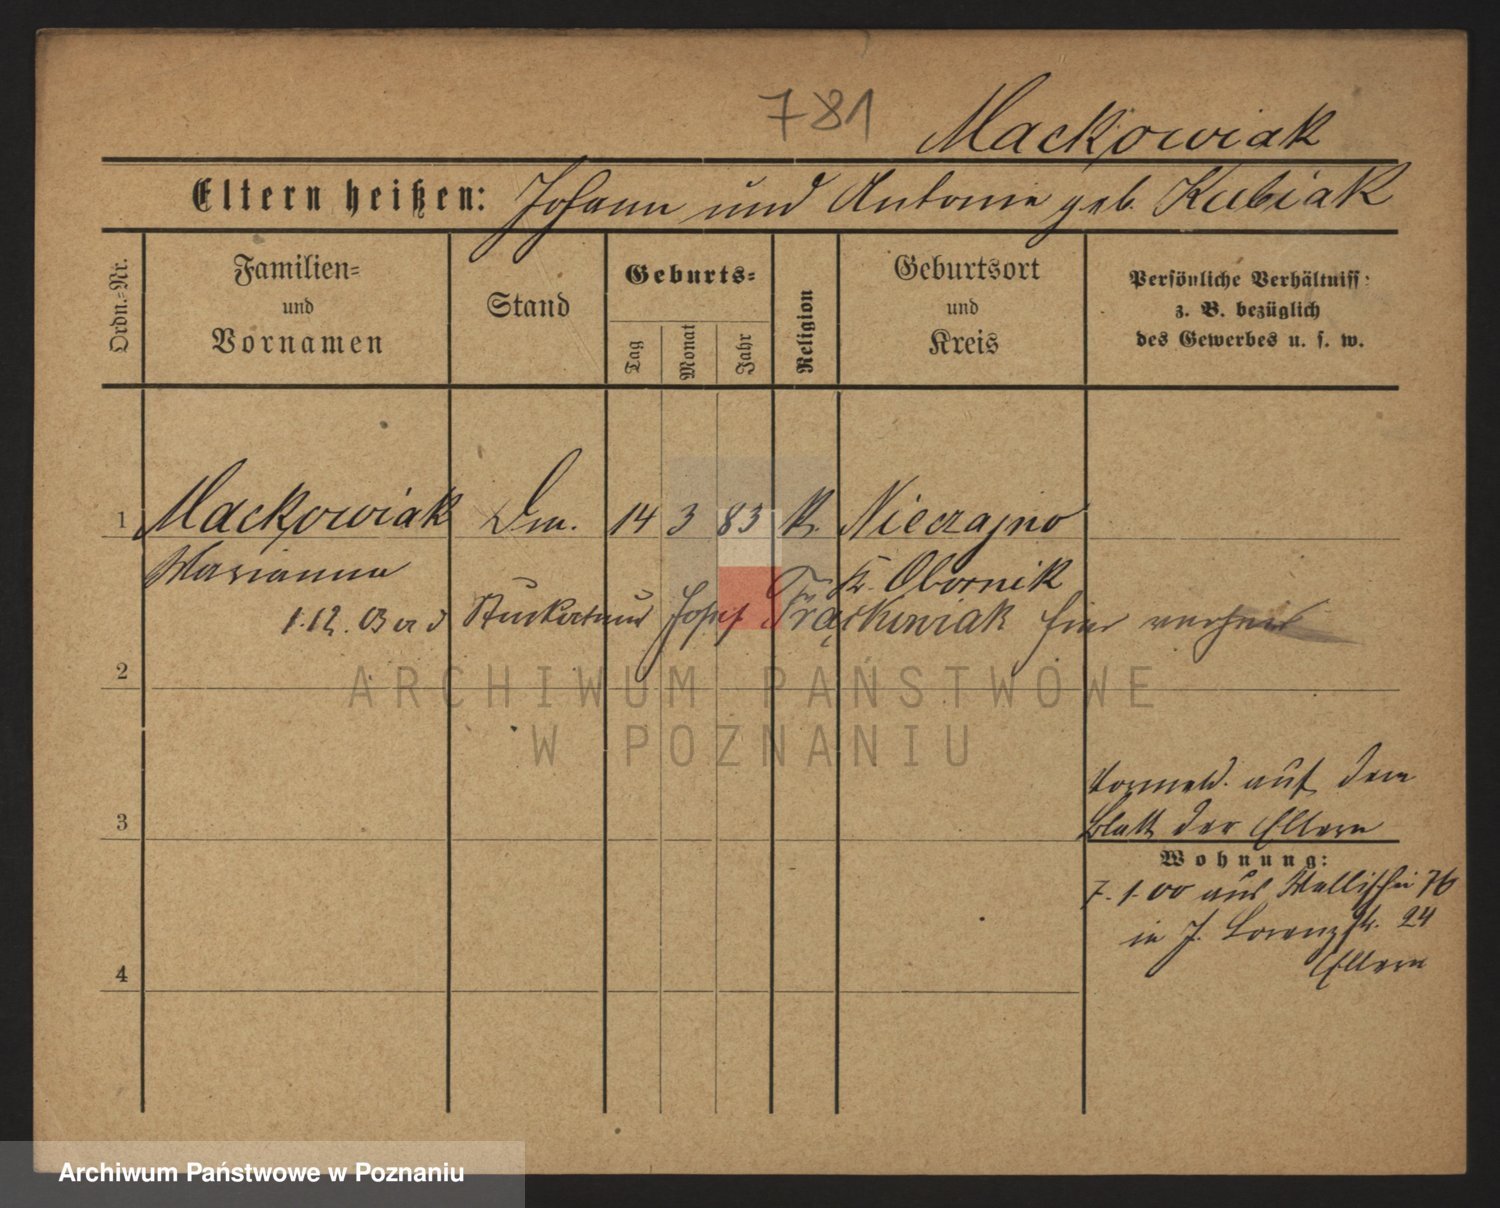 781
Mackowiak
Eltern heißen: Johann und Antonie geb. Kubiak
Ordn.=Nr.
Familien=
und
Vornamen
Stand
Geburts=
Tag
Monat
Jahr
Religion
Geburtsort
und
Kreis
Persönliche Verhältniss
z. B. bezüglich
des Gewerbes u. s. w.
1 Mackowiak Dm. 14 3 83 k. Nieczajno
Marianna Kr. Obornik
1.12. Josef hier
2
ARCHIWUM PAŃSTWOWE
W POZNANIU
Vormeld. auf dem
Blatt der Eltern
3
Wohnung:
7.1.00 aus Wallischei 76
in J. Lorenzstr. 24
Eltern
4
Archiwum Państwowe w Poznaniu